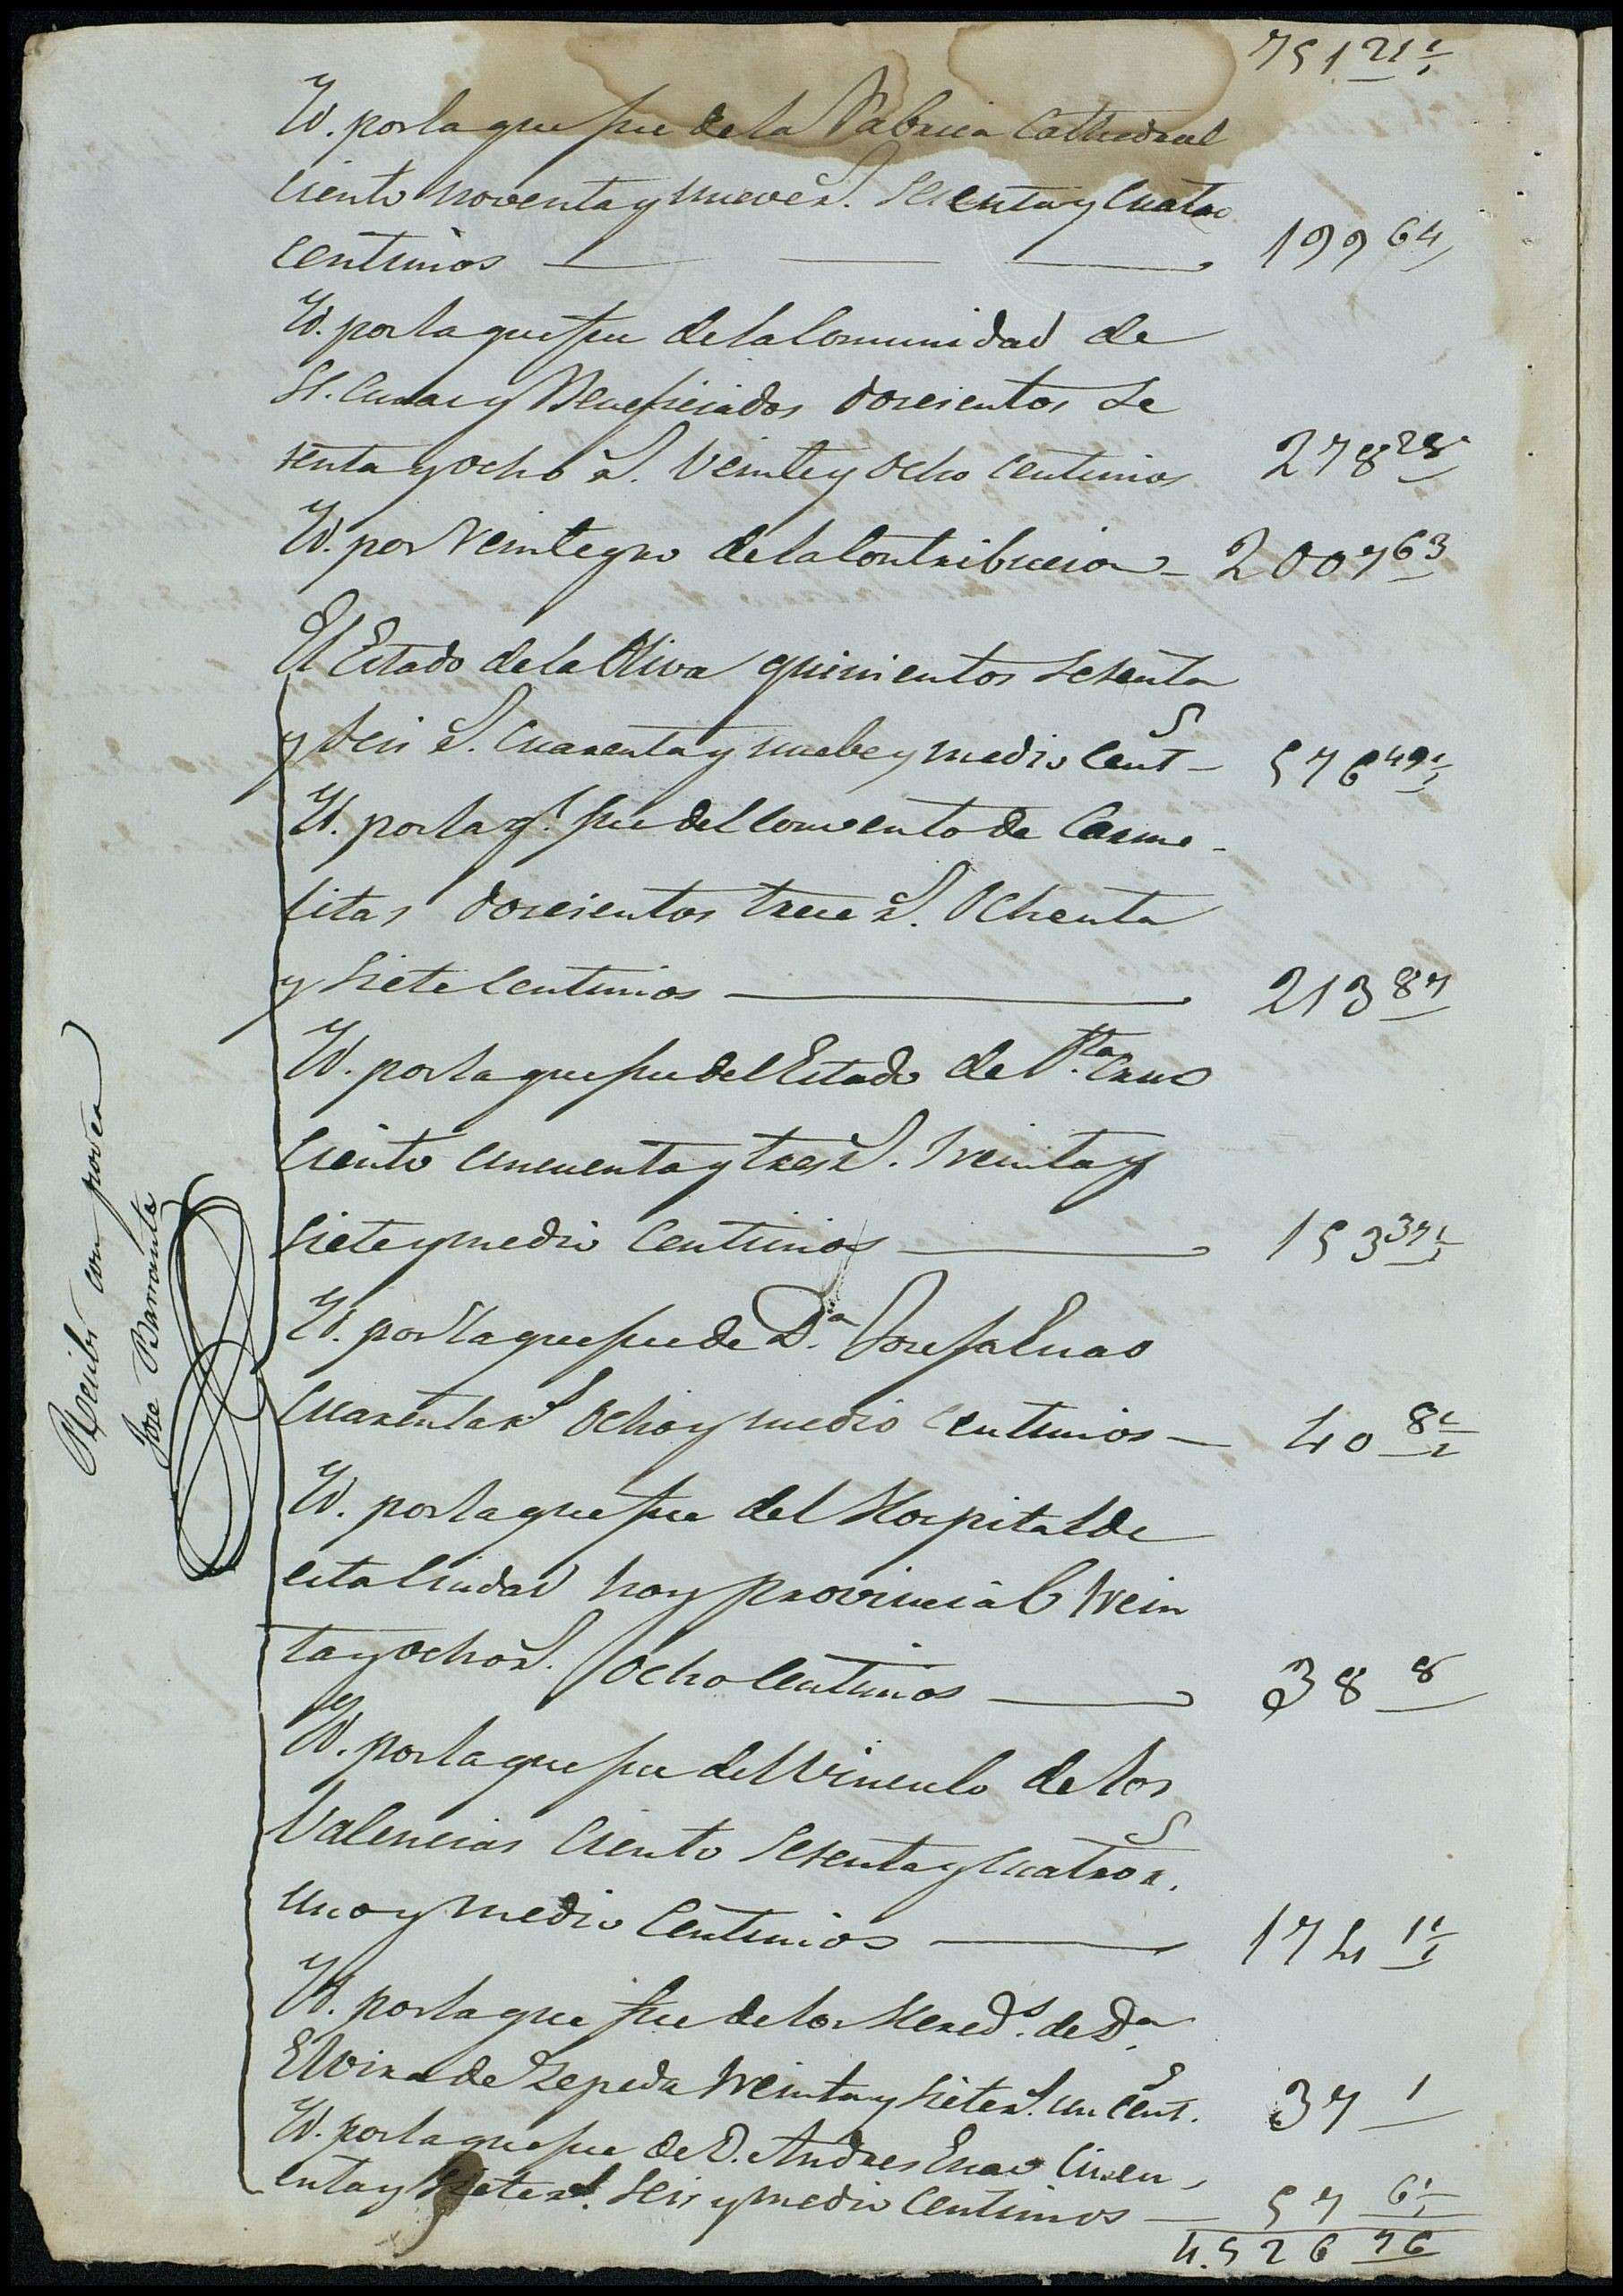 751 21 ½
Yd. por la que fue de la Fabrica Cathedral
Ciento noventa y nueve r.s Sesenta y Cuatro
Centimos 199 64
Yd. por la que fue de la Comunidad de
Sr. Curas y Beneficiados doscientos Se
tenta y ocho r.s Veinte y Ocho Centimos 278 28
Yd. por Reintegro de la Contribucion 2007 63
El Estado de la Oliva quinientos Setenta
y Seis r.s Cuarenta y nuebe y medio Cents 576 49 ½
Yd. por la q.e fue del Convento de Carme-
litas doscientos trece r.s Ochenta
y Siete Centimos 213 87
Yd. por la que fue del Estado de S.ta Crus
Ciento Cincuenta y tres r.s Treinta y
Siete y medio Centimos 153 37 ½
Yd. por la que fue de D.a Josefa Enao
Cuarenta r.s Ocho y medio Centimos 40 8 ½
Yd. por la que fue del Hospital de
esta Ciudad hoy provincial trein
ta y ocho r.s Ocho Centimos 38 8
Yd. por la que fue del Vinculo de los
Valencias Ciento Setenta y Cuatro r.s
uno y medio Centimos 174 1 ½
Yd. por la que fue de los Hered.s de D.a
Elvira de Zepeda treinta y Siete r.s un Cents. 37 1
Yd. por la que fue de D. Andres Enao Cincu
enta y Siete r.s Seis y medio Centimos 57 6 ½
4.526 76
Recibi con poder
Jose Barrante